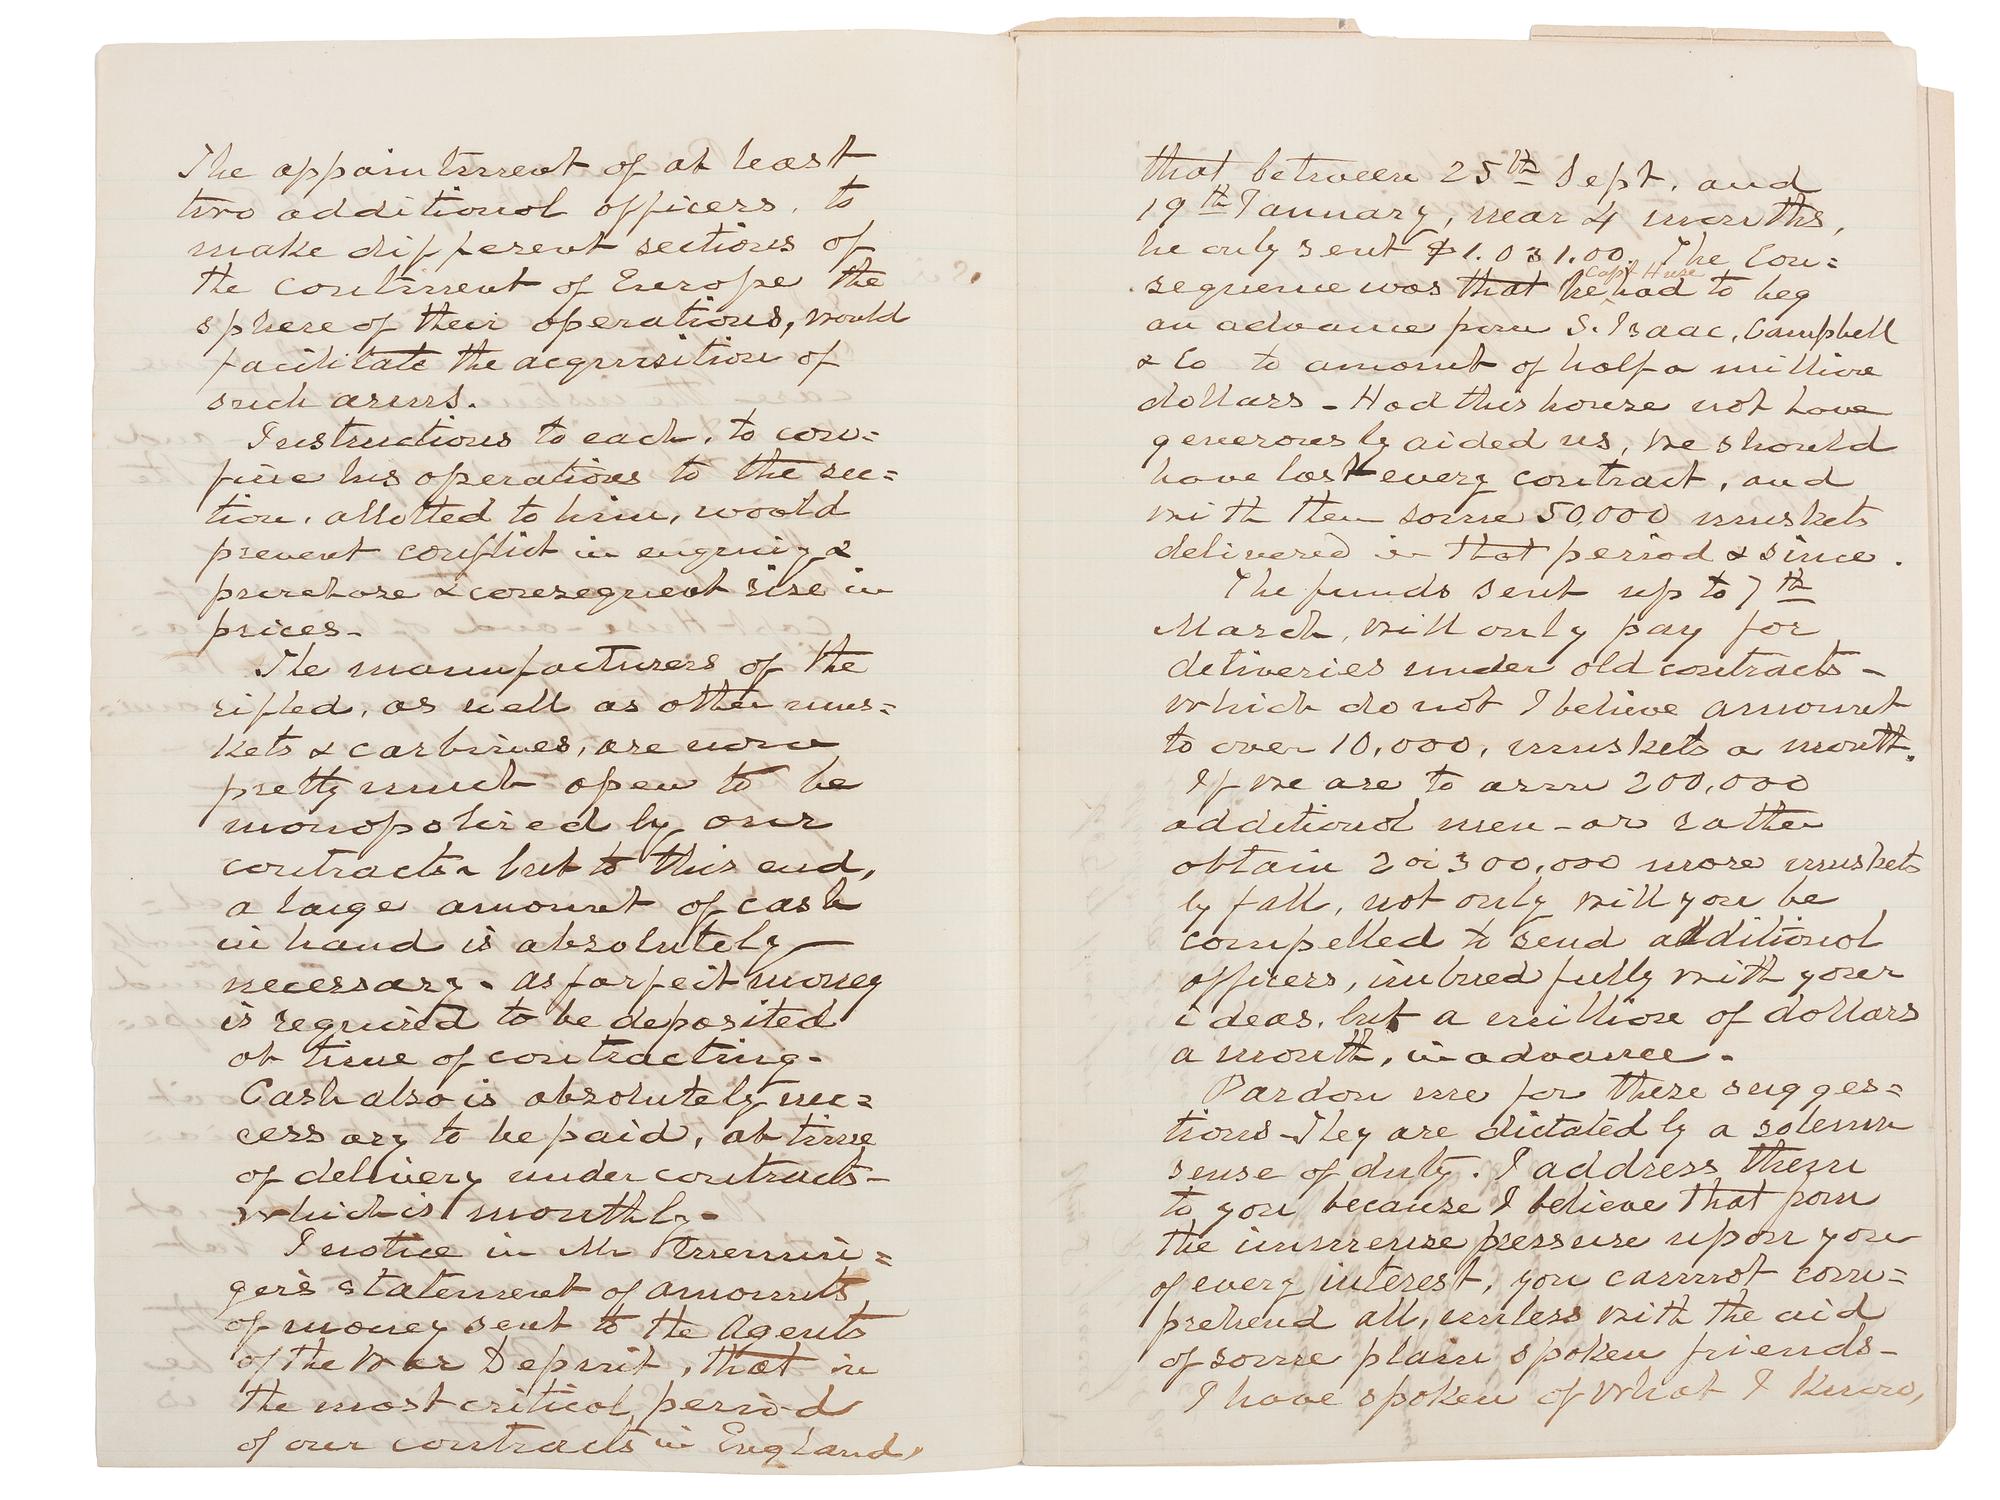 The appointment of at least
two additional officers, to
make different sections of
the continent of Europe the
sphere of their operations, would
facilitate the acquisition of
such arms.
Instructions to each, to con=
fine his operations to the sec=
tion, allotted to him, would
prevent conflict in enquiry &
purchase & consequent rise in
prices-
The manufacturers of the
rifled, as well as other mus=
kets & carbines, are now
pretty much open to be
monopolized by our
contracts - but to this end,
a large amount of cash
in hand is absolutely
necessary - as forfeit money
is required to be deposited
at time of contracting -
Cash also is absolutely nec=
cessary to be paid, at time
of delivery under contracts-
which is monthly -
I notice in Mr Memmin=
ger's statement of amounts
of money sent to the Agents
of the War Depmt, that in
the most critical period
of our contracts in England,
that between 25th Sept, and
19th January, near 4 months,
he only sent $1.031.00. The Con=
Capt Huse
sequence was that he had to beg
an advance from S. Isaac, Campbell
& Co to amount of half a million
dollars - Had this house not have
generously aided us, we should
have lost every contract, and
with them some 50,000 muskets
delivered in that period & since.
The funds sent up to 7th
March, will only pay for
deliveries under old contracts -
which do not I believe amount
to over 10,000, muskets a month.
If we are to arm 200,000
additional men - or rather
obtain 2 or 300,000 more muskets
by fall, not only will you be
compelled to send additional
officers, imbued fully with your
ideas, but a million of dollars
a month, in advance -
Pardon me for these sugges=
tions - They are dictated by a solemn
sense of duty. I address them
to you because I believe that from
the immense pressure upon you
of every interest, you cannot com=
prehend all, unless with the aid
of some plain spoken friends -
I have spoken of what I know,